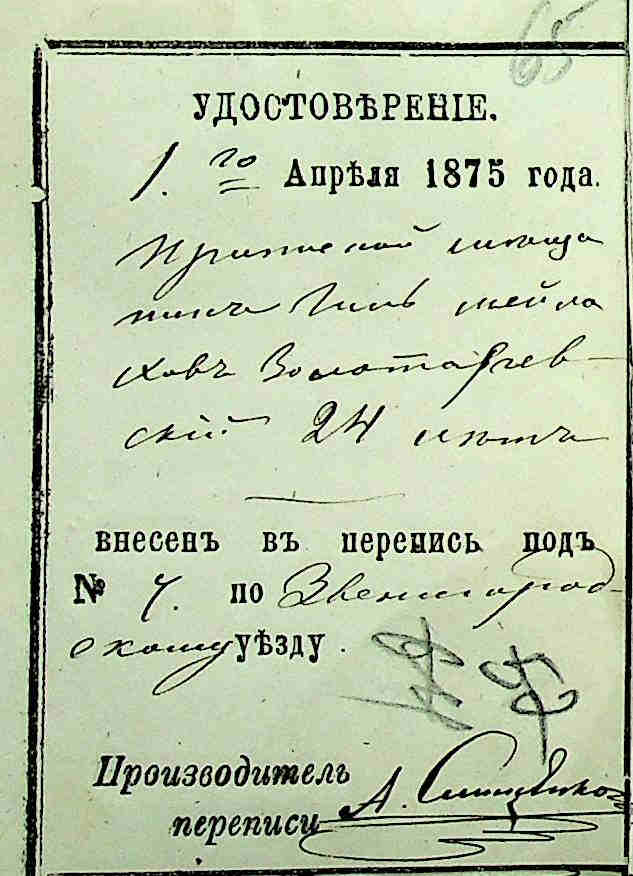 65
УДОСТОВѢРЕНІЕ.
1. го Апрѣля 1875 года.
мѣща
нинъ Гиль Мейла
ховъ Золотарев-
скій 24 лѣтъ
внесенъ въ перепись подъ
№ 7. по Звенигород-
скому уѣзду.
Производитель
переписи А.